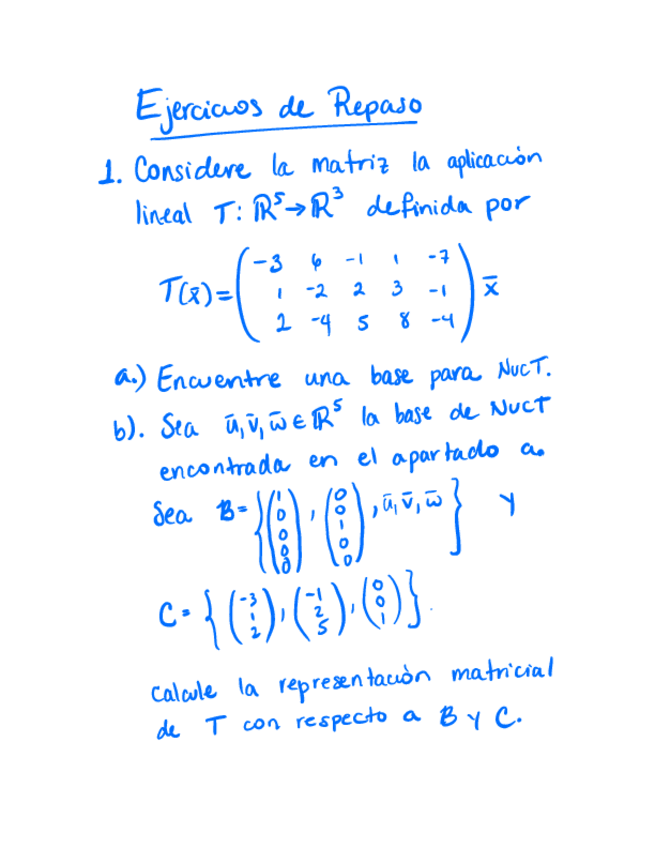 Ejercicios de Repaso
1. Considere la matriz la aplicación
lineal T: ℝ⁵→ℝ³ definida por
T(x̄)= ( -3 6 -1 1 -7
1 -2 2 3 -1
2 -4 5 8 -4 ) x̄
a.) Encuentre una base para NucT.
b). Sea ū, v̄, w̄ ∈ ℝ⁵ la base de NucT
encontrada en el apartado a.
Sea B= { (1 0 0 0 0), (0 0 1 0 0), ū, v̄, w̄ } y
C= { (-3 1 2), (-1 2 5), (0 0 1) }.
calcule la representación matricial
de T con respecto a B y C.